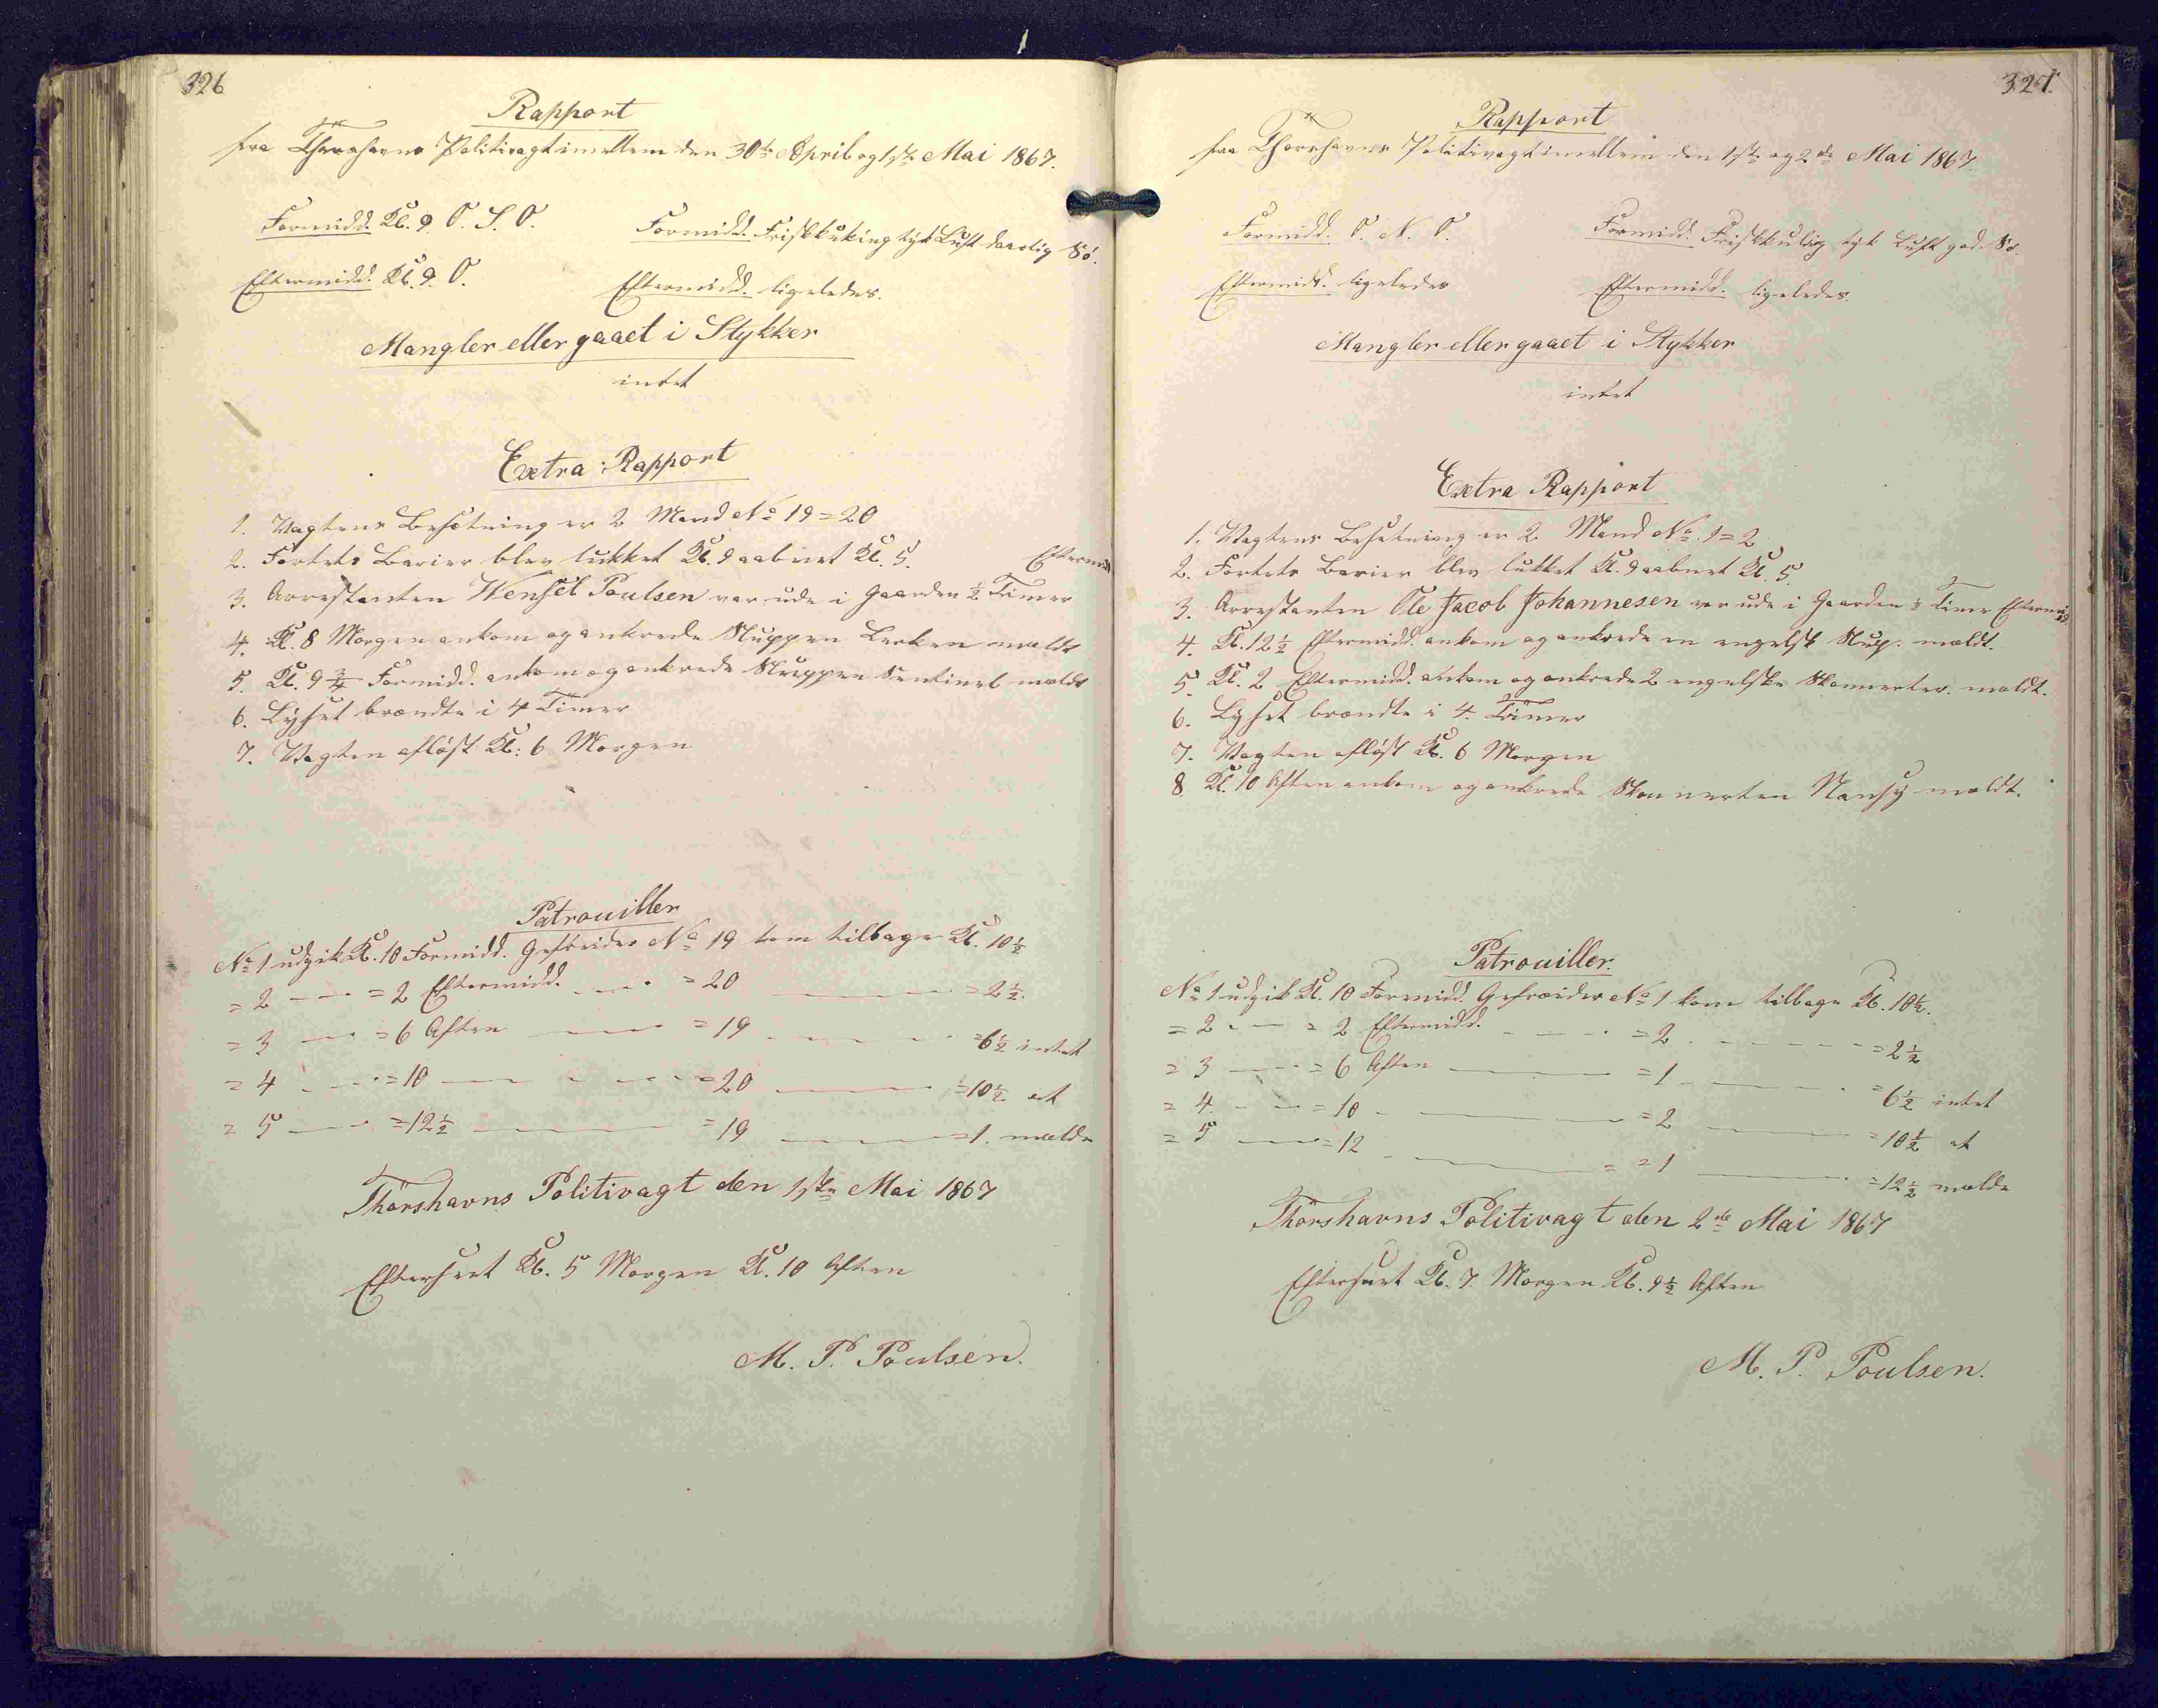 326
Rapport
fra Thorshavns Politivagt imellem den 30te April og 1ste Mai 1867.
Formidd. Kl. 9 O. S. O. Formidd. Friskkuling tyk Luft daarlig Sö.
Eftermidd. Kl. 9. O. Eftermidd. ligeledes.
Mangler eller gaaet i Stykker
intet
Extra Rapport
1. Vagtens Besætning er 2 Mand No 19 = 20
2. Fortets Barier blev lukket Kl. 9 aabnet Kl. 5.
3. Arrestanten Wensel Poulsen var ude i Gaarden ½ Time Eftermidd
4. Kl. 8 Morgen ankom og ankrede Sluppen meldt
5. Kl. 9¾ Formidd. ankom og ankrede Sluppen Sentinel meldt
6. Lyset brændte i 4 Timer
7. Vagten aflöst Kl: 6 Morgen
Patrouiller
No 1 udgik Kl. 10 Formidd. Gefreider No 19 kom tilbage Kl. 10½
= 2 — = 2 Eftermidd. — = 20 — = 2½.
= 3 — = 6 Aften — = 19 — = 6½ intet
= 4 — = 10 — = 20 — = 10½ at
= 5 — = 12½ — = 19 — = 1. melde
Thorshavns Politivagt den 1ste Mai 1867
Efterseet Kl. 5 Morgen Kl. 10 Aften
M. P. Poulsen.
327.
Rapport
fra Thorshavns Politivagt imellem den 1ste og 2de Mai 1867.
Formidd. O. N. O. Formidd. Friskkuling tyk Luft god Sö.
Eftermidd. ligeledes Eftermidd. ligeledes.
Mangler eller gaaet i Stykker
intet
Extra Rapport
1. Vagtens Besætning er 2 Mand No. 1 = 2
2. Fortets Barier blev lukket Kl. 9 aabnet Kl. 5.
3. Arrestanten Ole Jacob Johannesen var ude i Gaarden ½ Time Eftermidd
4. Kl. 12½ Eftermidd. ankom og ankrede en engelsk Slup. meldt.
5. Kl. 2 Eftermidd. ankom og ankrede 2 engelske Skonnerter. meldt.
6. Lyset brændte i 4. Timer
7. Vagten aflöst Kl. 6 Morgen
8. Kl. 10 Aften ankom og ankrede Skonnerten Nansy meldt.
Patrouiller.
No 1 udgik Kl. 10 Formidd. Gefreider No 1 kom tilbage Kl. 10½.
= 2 — = 2 Eftermidd. — = 2 — = 2½
= 3 — = 6 Aften — = 1 — = 6½ intet
= 4 — = 10 — = 2 — = 10½ at
= 5 — = 12 — = = 1 — = 12½ melde
Thorshavns Politivagt den 2de Mai 1867
Efterseet Kl. 7. Morgen Kl. 9½ Aften
M. P. Poulsen.